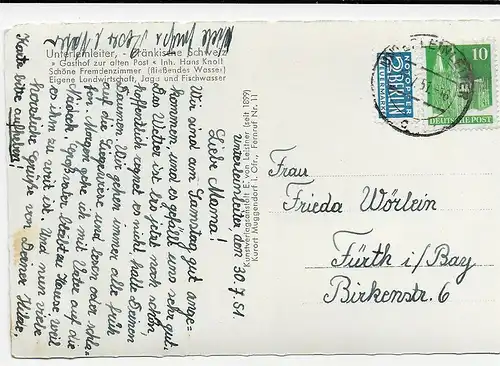 Unterleinleiter, - Fränkische Schweiz
» Gasthof zur alten Post « Inh. Hans Knoll
Schöne Fremdenzimmer (fließendes Wasser)
Eigene Landwirtschaft, Jagd und Fischwasser
Kunstverlagsanstalt E. von Leistner (seit 1899)
Kurort Muggendorf i. Ofr., Fernruf Nr. 11
Unterleinleiter den 30.7.51.
Liebe Mama!
Wir sind am Samstag gut ange-
kommen und es gefällt uns sehr gut.
Das Wetter ist bis jetzt noch schön,
hoffentlich regnet es nicht, halte Deinen
Daumen. Wir gehen immer alle früh
auf die Liegewiese und lesen oder schla-
fen. Morgen gehe ich mit Vater auf die
Neideck. Großvater bleibt zu Hause, weil
es ihm zu weit ist. Und nun viele
herzliche Grüße von Deiner Hilde.
Karte bitte aufheben!
NOTOPFER
2 BERLIN
STEUERMARKE
10
DEUTSCHE POST
Frau
Frieda Wörlein
Fürth i/Bay
Birkenstr. 6